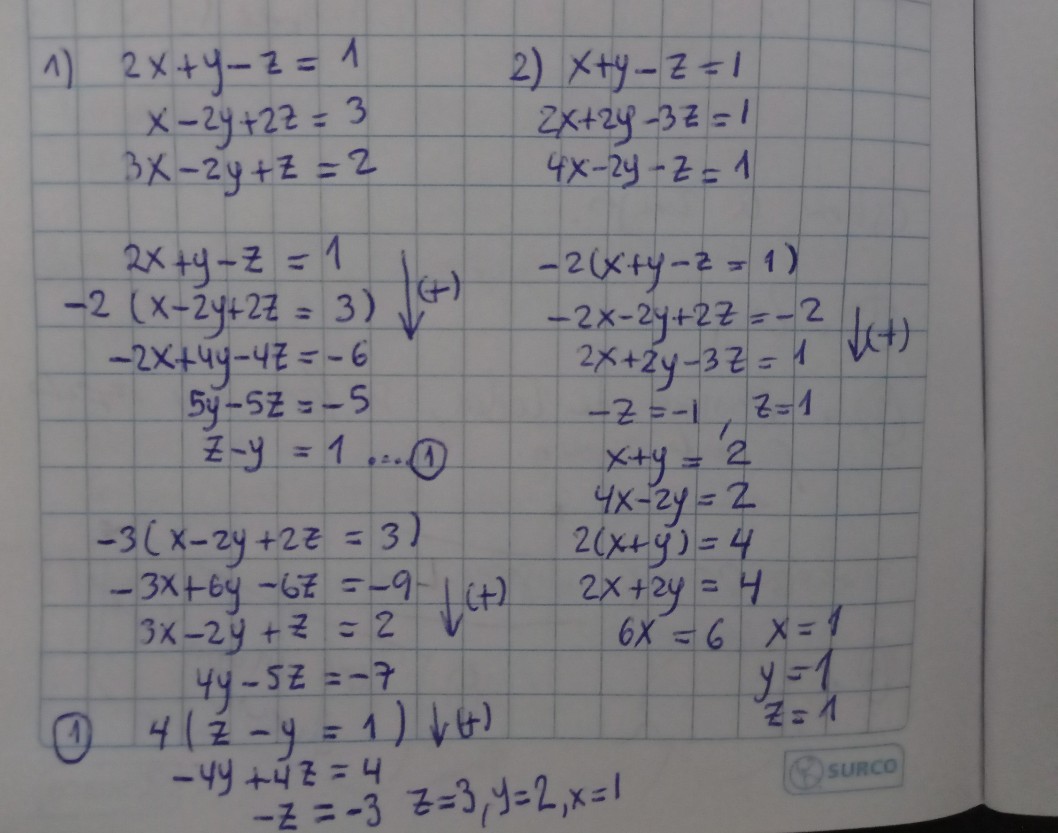 1) 2x+y-z = 1
x-2y+2z = 3
3x-2y+z = 2
2x+y-z = 1
-2 (x-2y+2z = 3) ↓(+)
-2x+4y-4z=-6
5y-5z=-5
z-y = 1 ....①
-3(x-2y+2z = 3)
-3x+6y-6z =-9
3x-2y+z = 2 ↓(+)
4y-5z=-7
① 4(z-y = 1) ↓(+)
-4y+4z=4
-z=-3 z=3,y=2,x=1
2) x+y-z=1
2x+2y-3z=1
4x-2y-z=1
-2(x+y-z = 1)
-2x-2y+2z=-2
2x+2y-3z = 1 ↓(+)
-z=-1, z=1
x+y= 2
4x-2y=2
2(x+y)=4
2x+2y=4
6x=6 x=1
y=1
z=1
SURCO